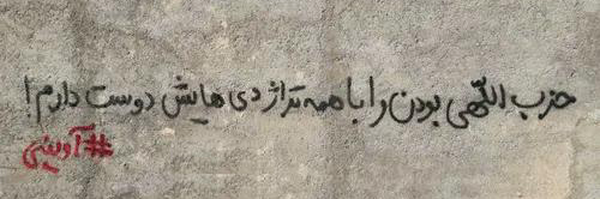 حزب اللّهی بودن را با همه تراژدی هایش دوست دارم!
#آوینی